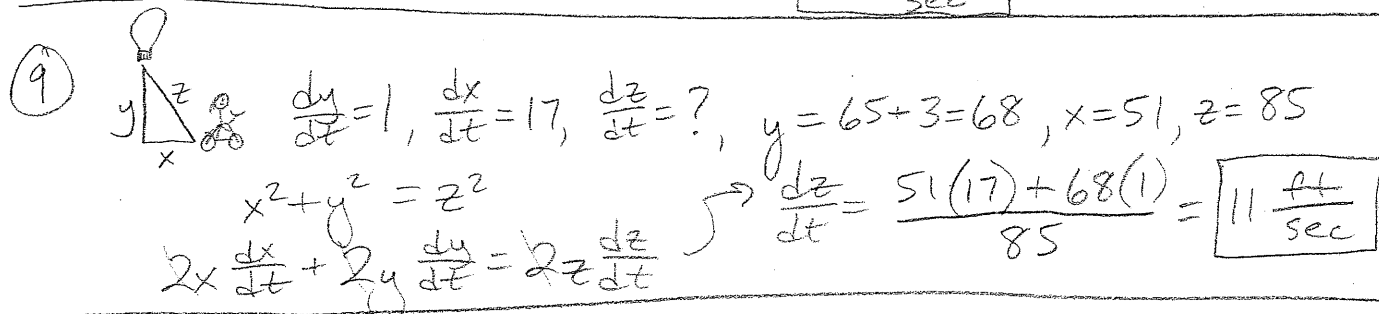 sec
9 y z x dy/dt = 1, dx/dt = 17, dz/dt = ?, y = 65+3=68, x=51, z=85
x² + y² = z²
2x dx/dt + 2y dy/dt = 2z dz/dt → dz/dt = (51(17) + 68(1))/85 = 11 ft/sec